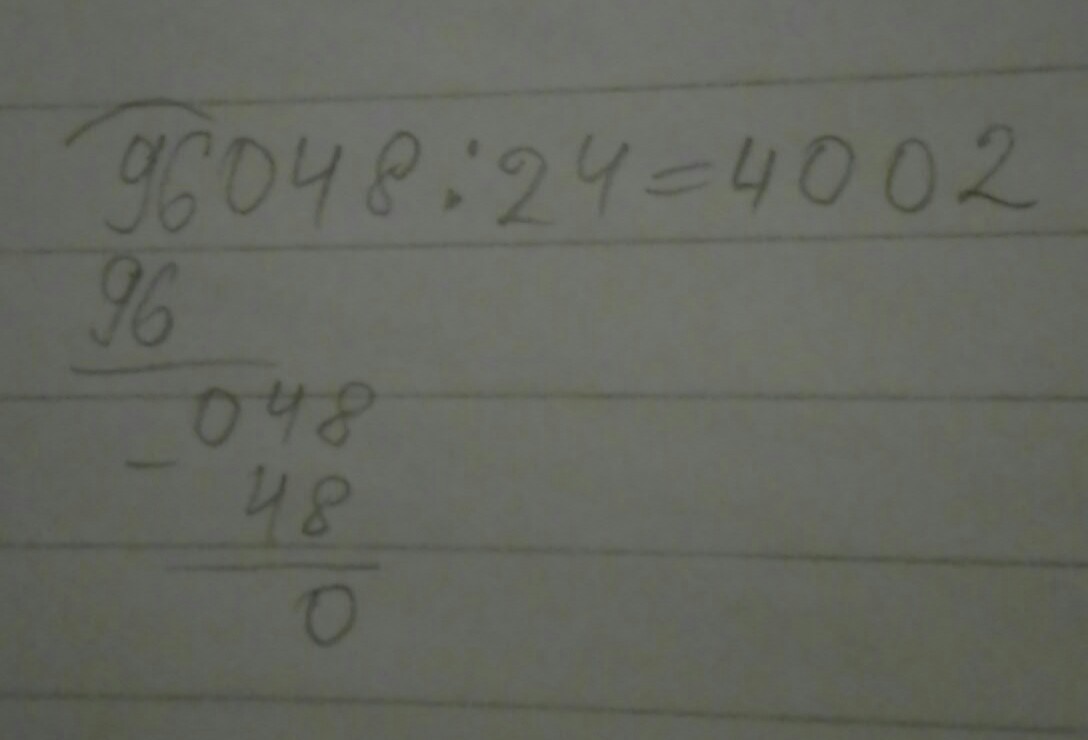 96048:24=4002
96
048
- 48
0